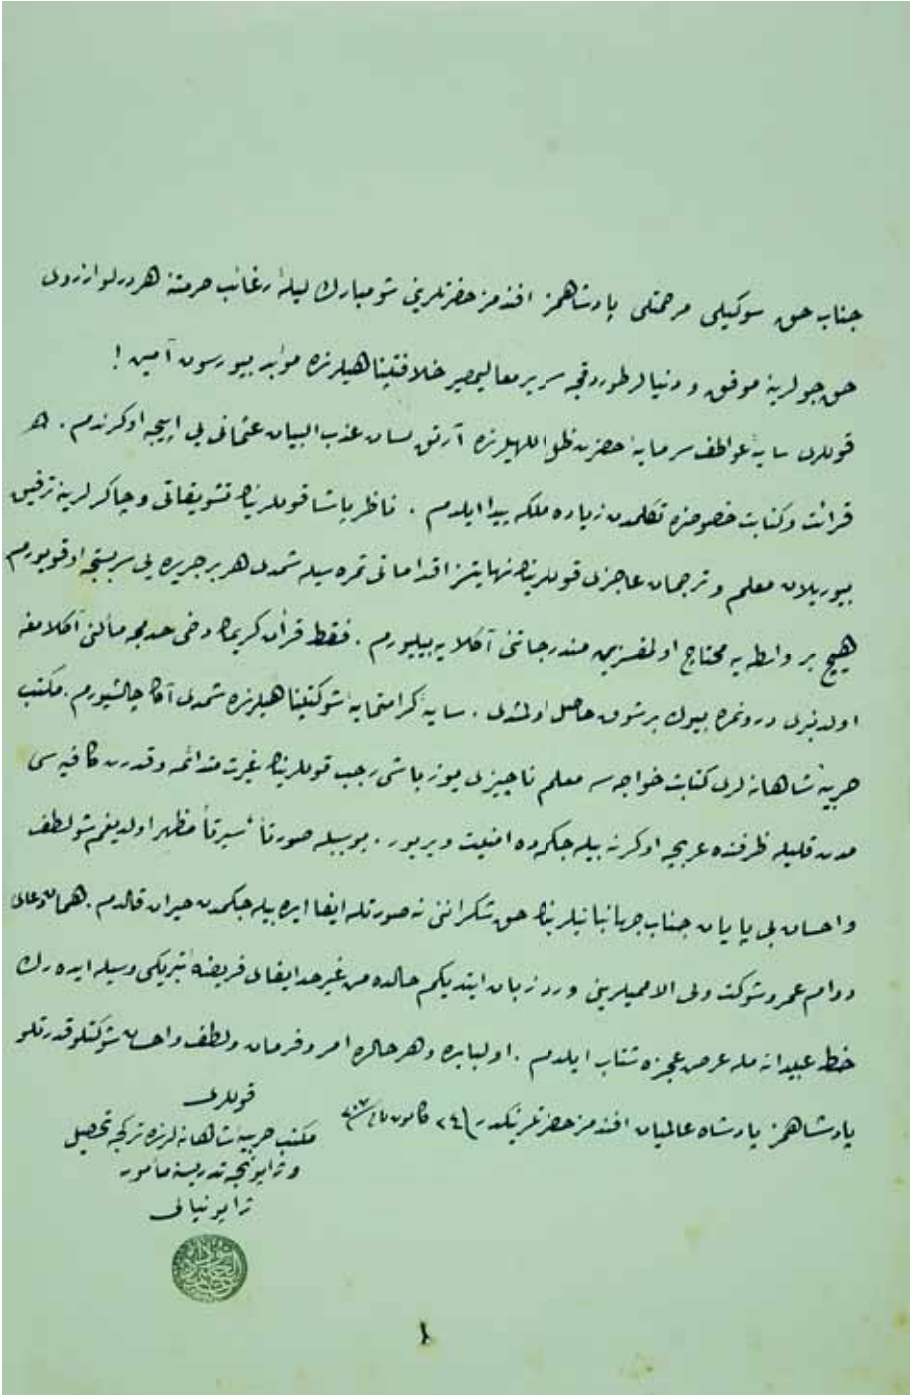 جناب حق سوكيلى مرحمتلى پادشاهمز افندمز حضرتلرينى شو مبارك ليلهٔ رغائب حرمتنه هر درلو ارزوى
حق جولرينه موفق و دنيالر طوردقجه سرير معاليمصير خلافتپناهيلرنده مؤبد بيورسون آمين !
قوللرى سايهٔ عواطف سرمايهٔ حضرت ظل اللهيلرنده آرتق لسان عذب البيان عثمانى يى اييجه اوكرندم .
قرائت وكتابت خصوصنده تكلمدن زياده ملكه پيدا ايلدم . ناظر پاشا قوللرينك تشويقاتى وچاكرلرينه ترفيق
بيوريلان معلم و ترجمان عاجزى قوللرينك نهايتسز اقداماتى ثمره سيله شمدى هر بر جريده يى سربستجه اوقويورم
هيچ بر واسطه يه محتاج اولمقسزين مندرجاتنى آكلايه بيليورم . فقط قرآن كريمك دخى حدمجه مآلنى آكلامغه
اولدقدرى درونمده بيوك بر شوق حاصل اولمشدى . سايهٔ كرامتمايهٔ شوكتپناهيلرنده شمدى آكا چاليشيورم . مكتب
حربيهٔ شاهانه لرى كتابت خواجه سى معلم ناچيزى يوزباشى رجب قوللرينك غيرت متدائمه وقدرت كافيه سى
مدت قليله ظرفنده عربجه اوكرنه بيله جكمه ده امنيت ويريور . بويله صورتاً سيرتاً مظهر اولديغم شو لطف
و احسان بى پايان جناب جهانبانيلرينك حق شكراننى نه صورتله ايفا ايده بيله جكمدن حيران قالدم . همان دعاى
دوام عمر وشوكت ولى الامميلرينى ورد زبان ايتديكم حالده من غير حد ايفاى فريضهٔ تبريكى وسيله ايده رك
خط عبيدانه مله عرض عجزه شتاب ايلدم . اولبابده وهر حالده امر وفرمان ولطف واحسان شوكتلو قدرتلو
پادشاهمز پادشاه عالميان افندمز حضرتلرينكدر ٢٤ كانون ثانى
قوللرى
مكتب حربيهٔ شاهانه لرنده تركجه تحصيل
و ژاپونجه تدريسنه مأمور
ژاپونيالى
١